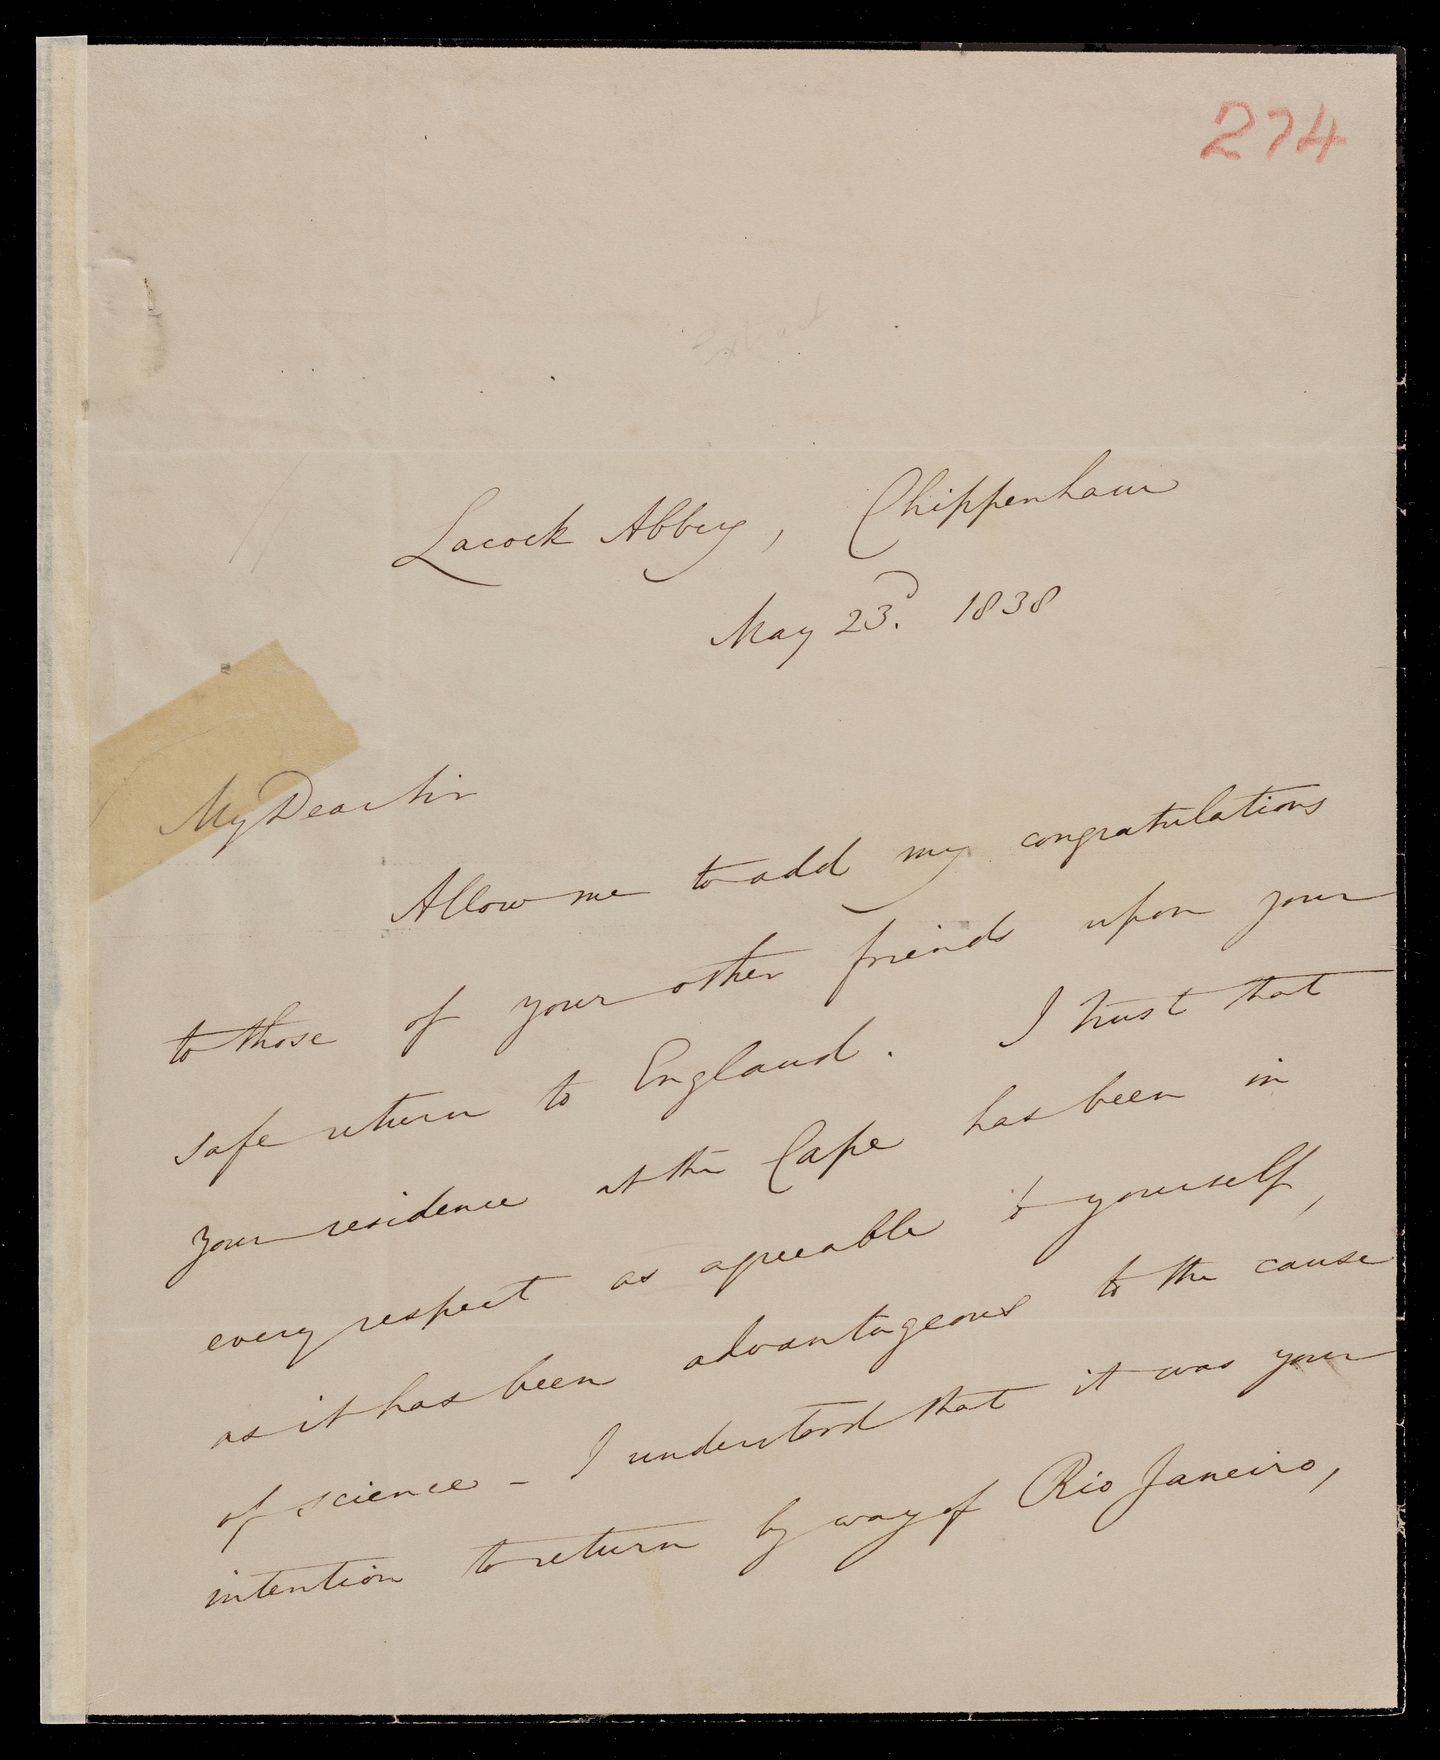 274
Extract
Lacock Abbey, Chippenham
May 23d. 1838
My Dear Sir
Allow me to add my congratulations
to those of your other friends upon your
safe return to England. I trust that
your residence at the Cape has been in
every respect as agreeable to yourself,
as it has been advantageous to the cause
of science - I understood that it was your
intention to return by way of Rio Janeiro,